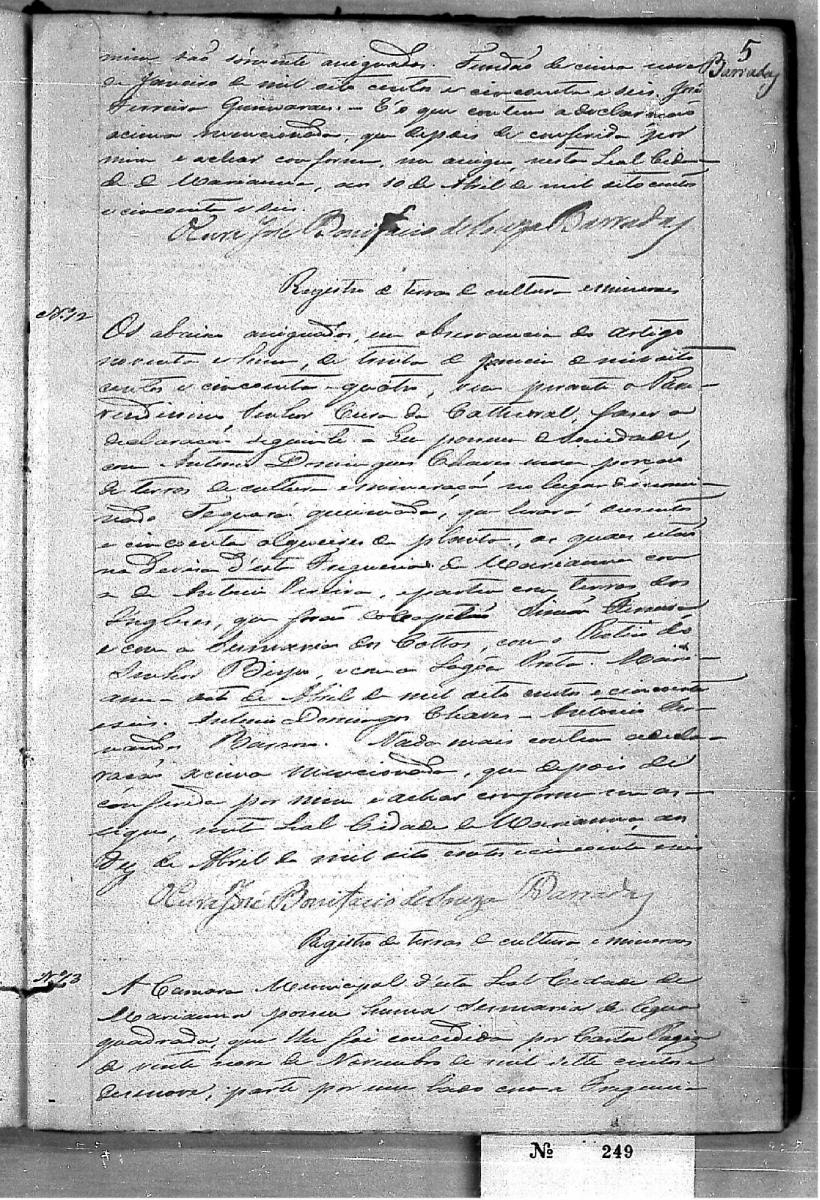 5
Barradas
mim são sómente assignados. Fundão de cima nove
de Janeiro de mil oito centos e cincoenta e seis. José
Ferreira Guimaraes. - E é o que contem a declaração
acima mencionada, que depois de conferida por
mim e achar conforme, me assigno, nesta Leal Cida-
de de Marianna, aos 10 de Abril de mil oito centos
e cincoenta e seis.
O Cura José Bonifacio de Souza Barradas
Registro de terras de cultura e mineraes
Nº 12
Os abaixo assignados, em observancia do artigo
noventa e hum, de trinta de Janeiro de mil oito
centos e cincoenta e quatro, vem perante o Reve-
rendissimo Senhor Cura da Cathedral, faser a
declaração seguinte = que possuem de sociedade,
com Antonio Domingues Chaves uma porção
de terras de cultura e mineração no lugar denomi-
nado queimada, que levará
e cincoenta alqueires de planta, as quaes estão
na devisa d'esta Freguesia de Marianna com
a de Antonio Pereira, e partem com terras dos
Ingleses, que forão do Capitão Simão Ferreira
e com a Sesmaria dos Cottos, com o do
Senhor Bispo, e com a Lagoa Preta. Mari-
anna oito de Abril de mil oito centos e cincoenta
e seis. Antonio Domingos Chaves = Antonio
Barros. Nada mais contem a decla-
ração acima mencionada, que depois de
conferida por mim e achar conforme me as-
signo, nesta Leal Cidade de Marianna, aos
Dez de Abril de mil oito centos e cincoenta e seis
O Cura José Bonifacio de Souza Barradas
Registro de terras de cultura e mineraes
Nº 13
A Camara Municipal d'esta Leal Cidade de
Marianna possue huma Sesmaria de legoa
quadrada, que lhe foi concedida por Carta Regia
de vinte nove de Novembro de mil sette centos e
desenove; parte por um lado com a Freguesia
Nº 249